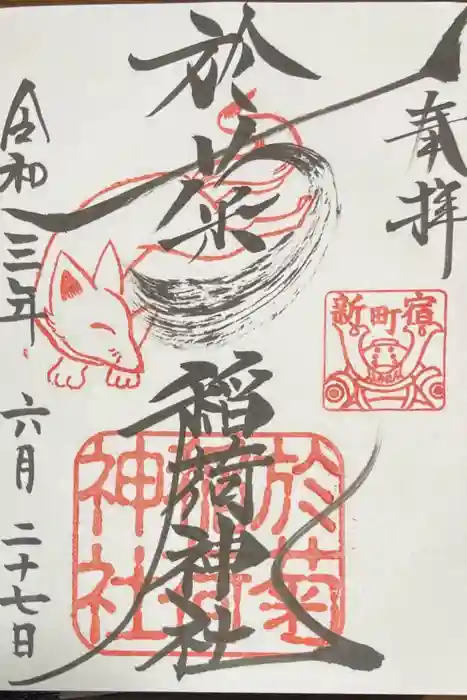 奉拝
新町宿
於菊稲荷神社
於菊
稲荷
神社
令和三年六月二十七日